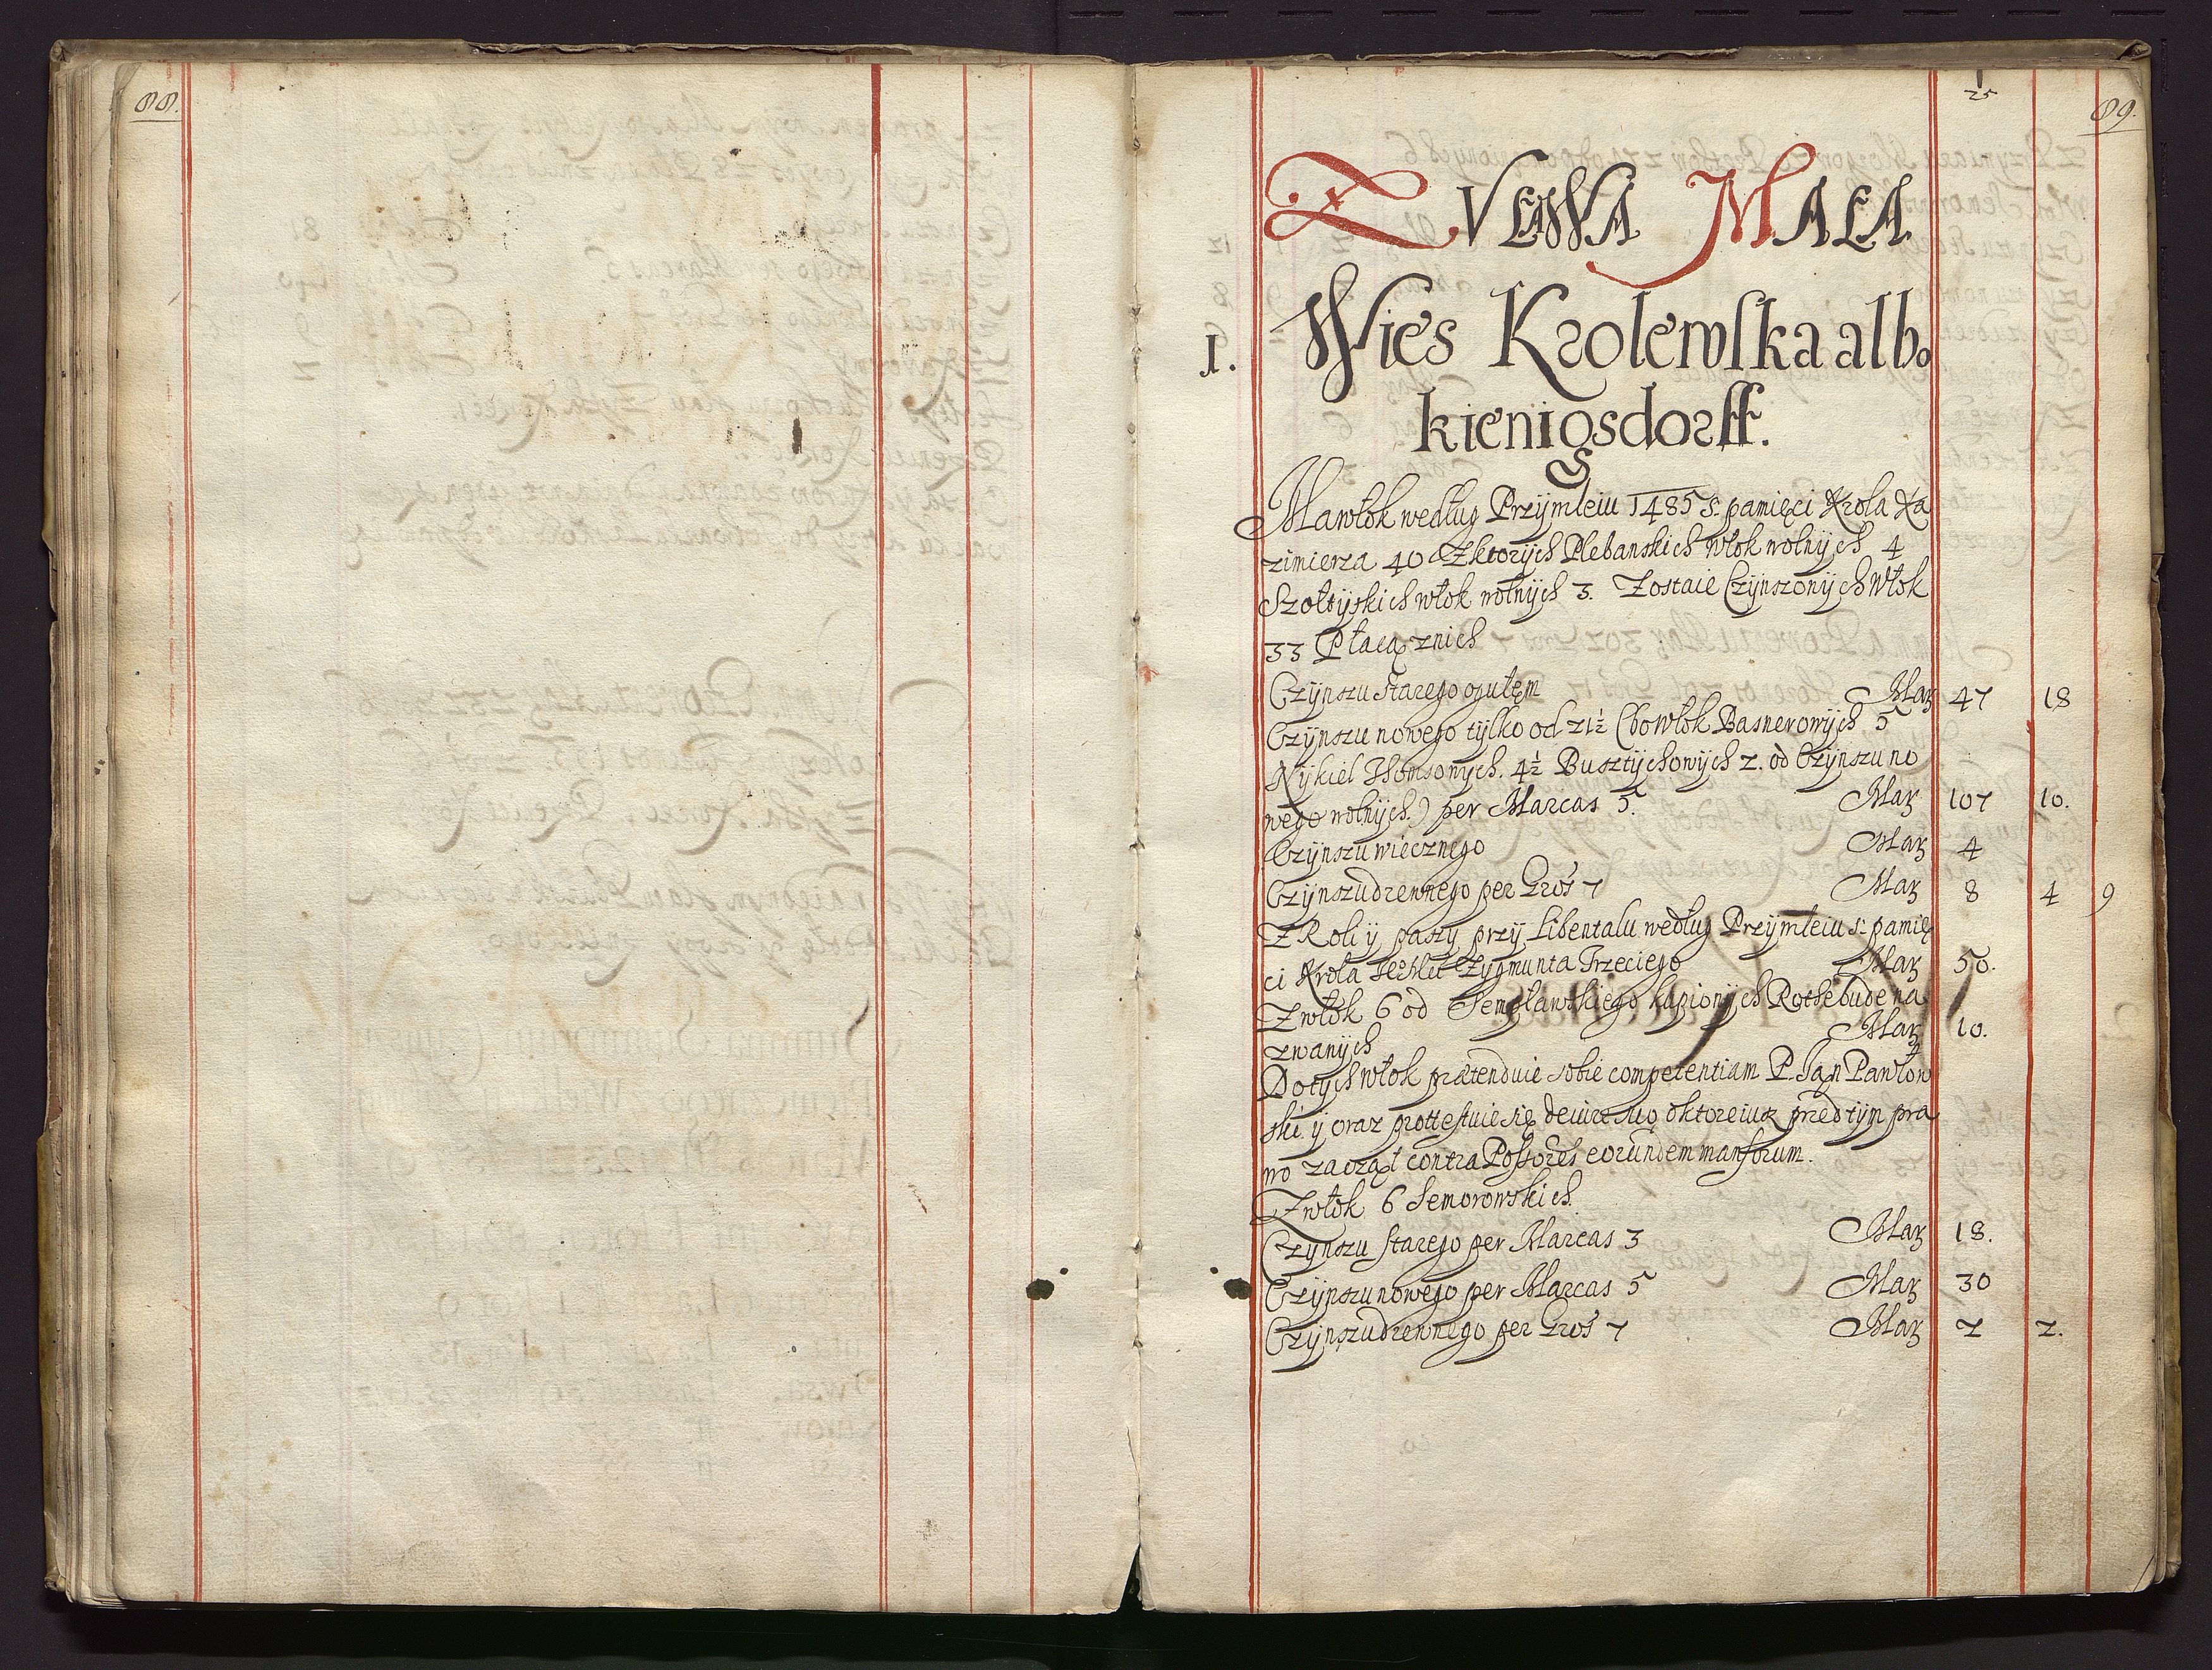 88.
25
89.
ZVŁAWA MAŁA
I. Wies Krolewska albo
kienigsdorff.
Ma włok według Przymleiu 1485 s. pamięci Krola Ka
zimierza 40 Zktorych Plebanskich włok wolnych 4
Szołtyskich włok wolnych 3. Zostaie Czynszowych Włok
33 Płacą znich
Czynszu starego ogułem Mar 47 18
Czynszu nowego tylko od 21½ (bo włok Basnerowych 5
Nykiel Thomsonych. 4½ Busztychowych 2. od Czynszu no
wego wolnych.) per Marcas 5. Mar 107 10.
Czynszu wiecznego Mar 4
Czynszu drewnego per Gros 7 Mar 8 4 9
Z Roli y paszy przy Libentalu według Przymleiu s. pamię
ci Krola Zygmunta Trzeciego Mar 50.
Z włok 6 od kupionych Rothebude na
zwanych Mar 10.
Do tych włok prætenduie sobie competentiam P. Jan Pawłow
ski y oraz prottestuie się de iure suo oktore iuz przed tym pra
wo zaczął contra Possores eorundem mansorum.
Z włok 6 Semorowskich.
Czynszu starego per Marcas 3 Mar 18.
Czynszu nowego per Marcas 5 Mar 30
Czynszu drewnego per Gros 7 Mar 2 2.